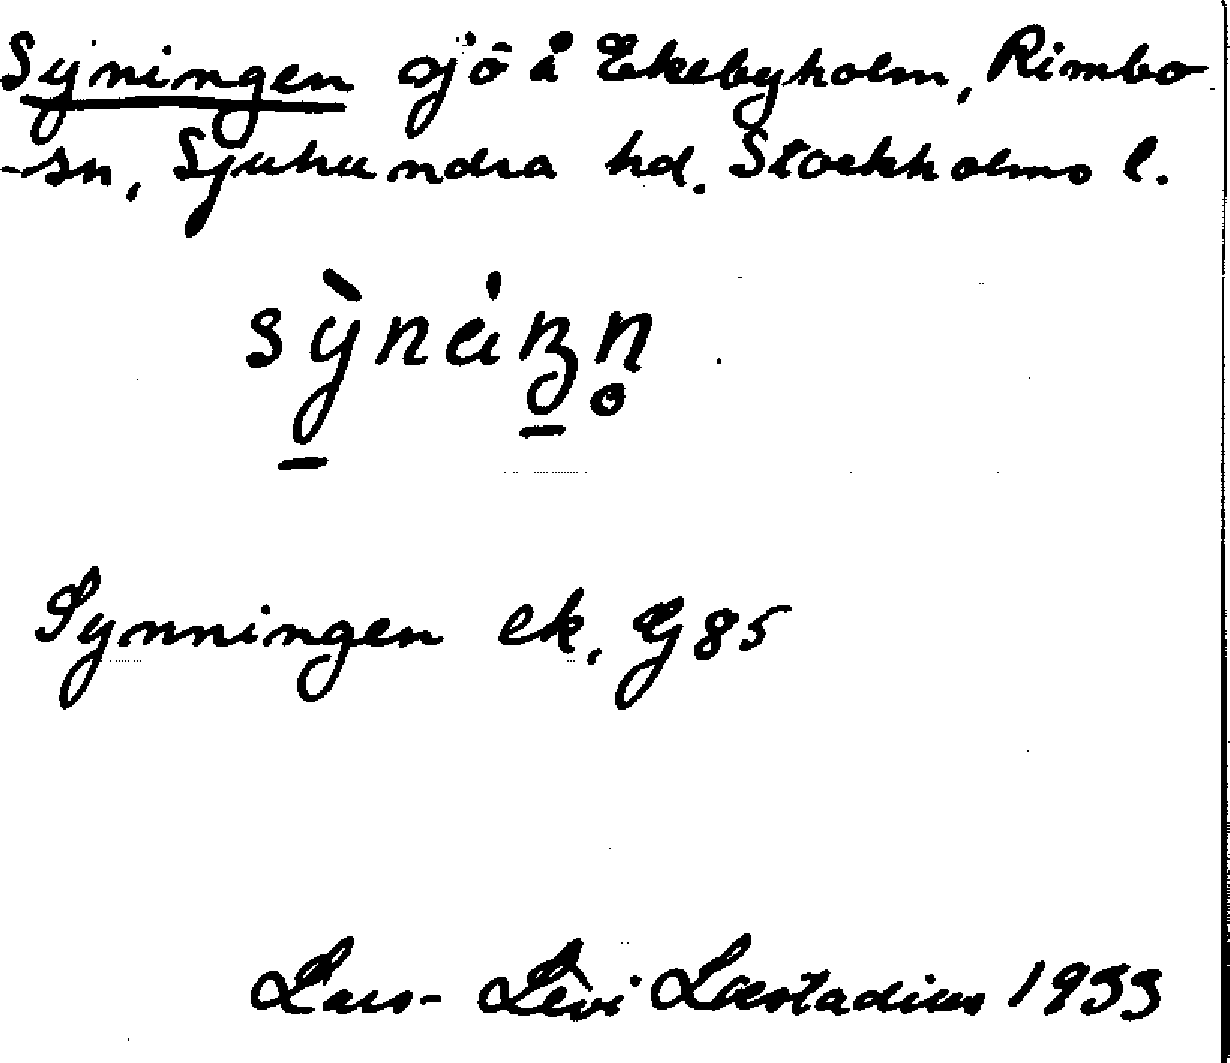 Syningen sjö å Ekebyholm, Rimbo
-sn, Sjuhundra hd. Stockholms l.
Synningen ek. G 85
Lars-Levi Læstadius 1933